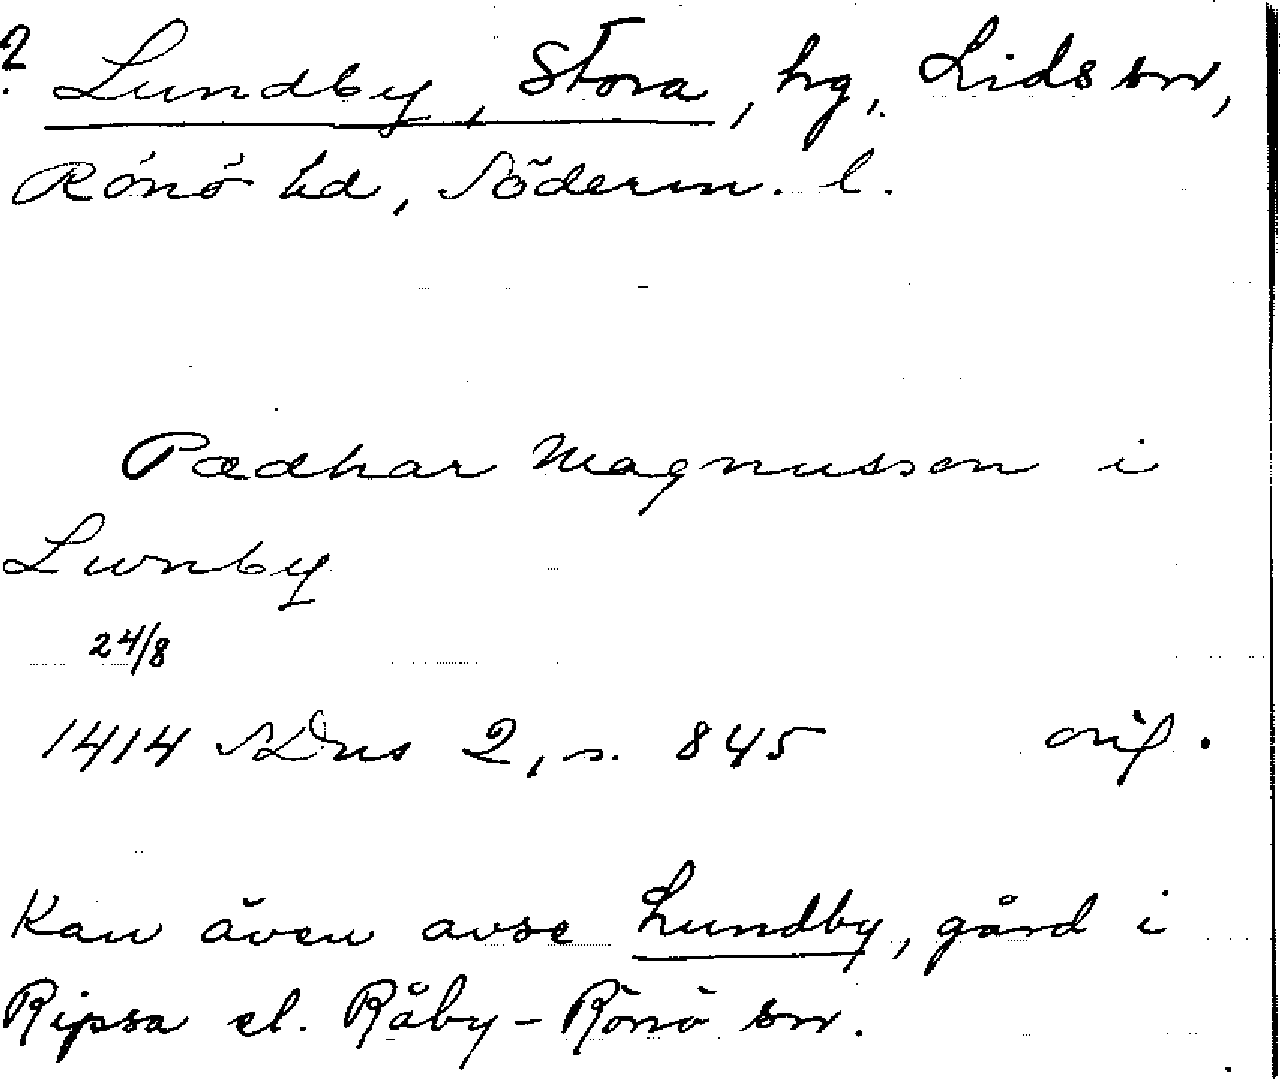 ? Lundby, Stora, hg, Lids sn,
Rönö hd, Söderm. l.
Pædhar Magnusson i
Lunby
24/8
1414 SDns 2, s. 845 orig.
Kan även avse Lundby, gård i
Ripsa el. Råby-Rönö sn.